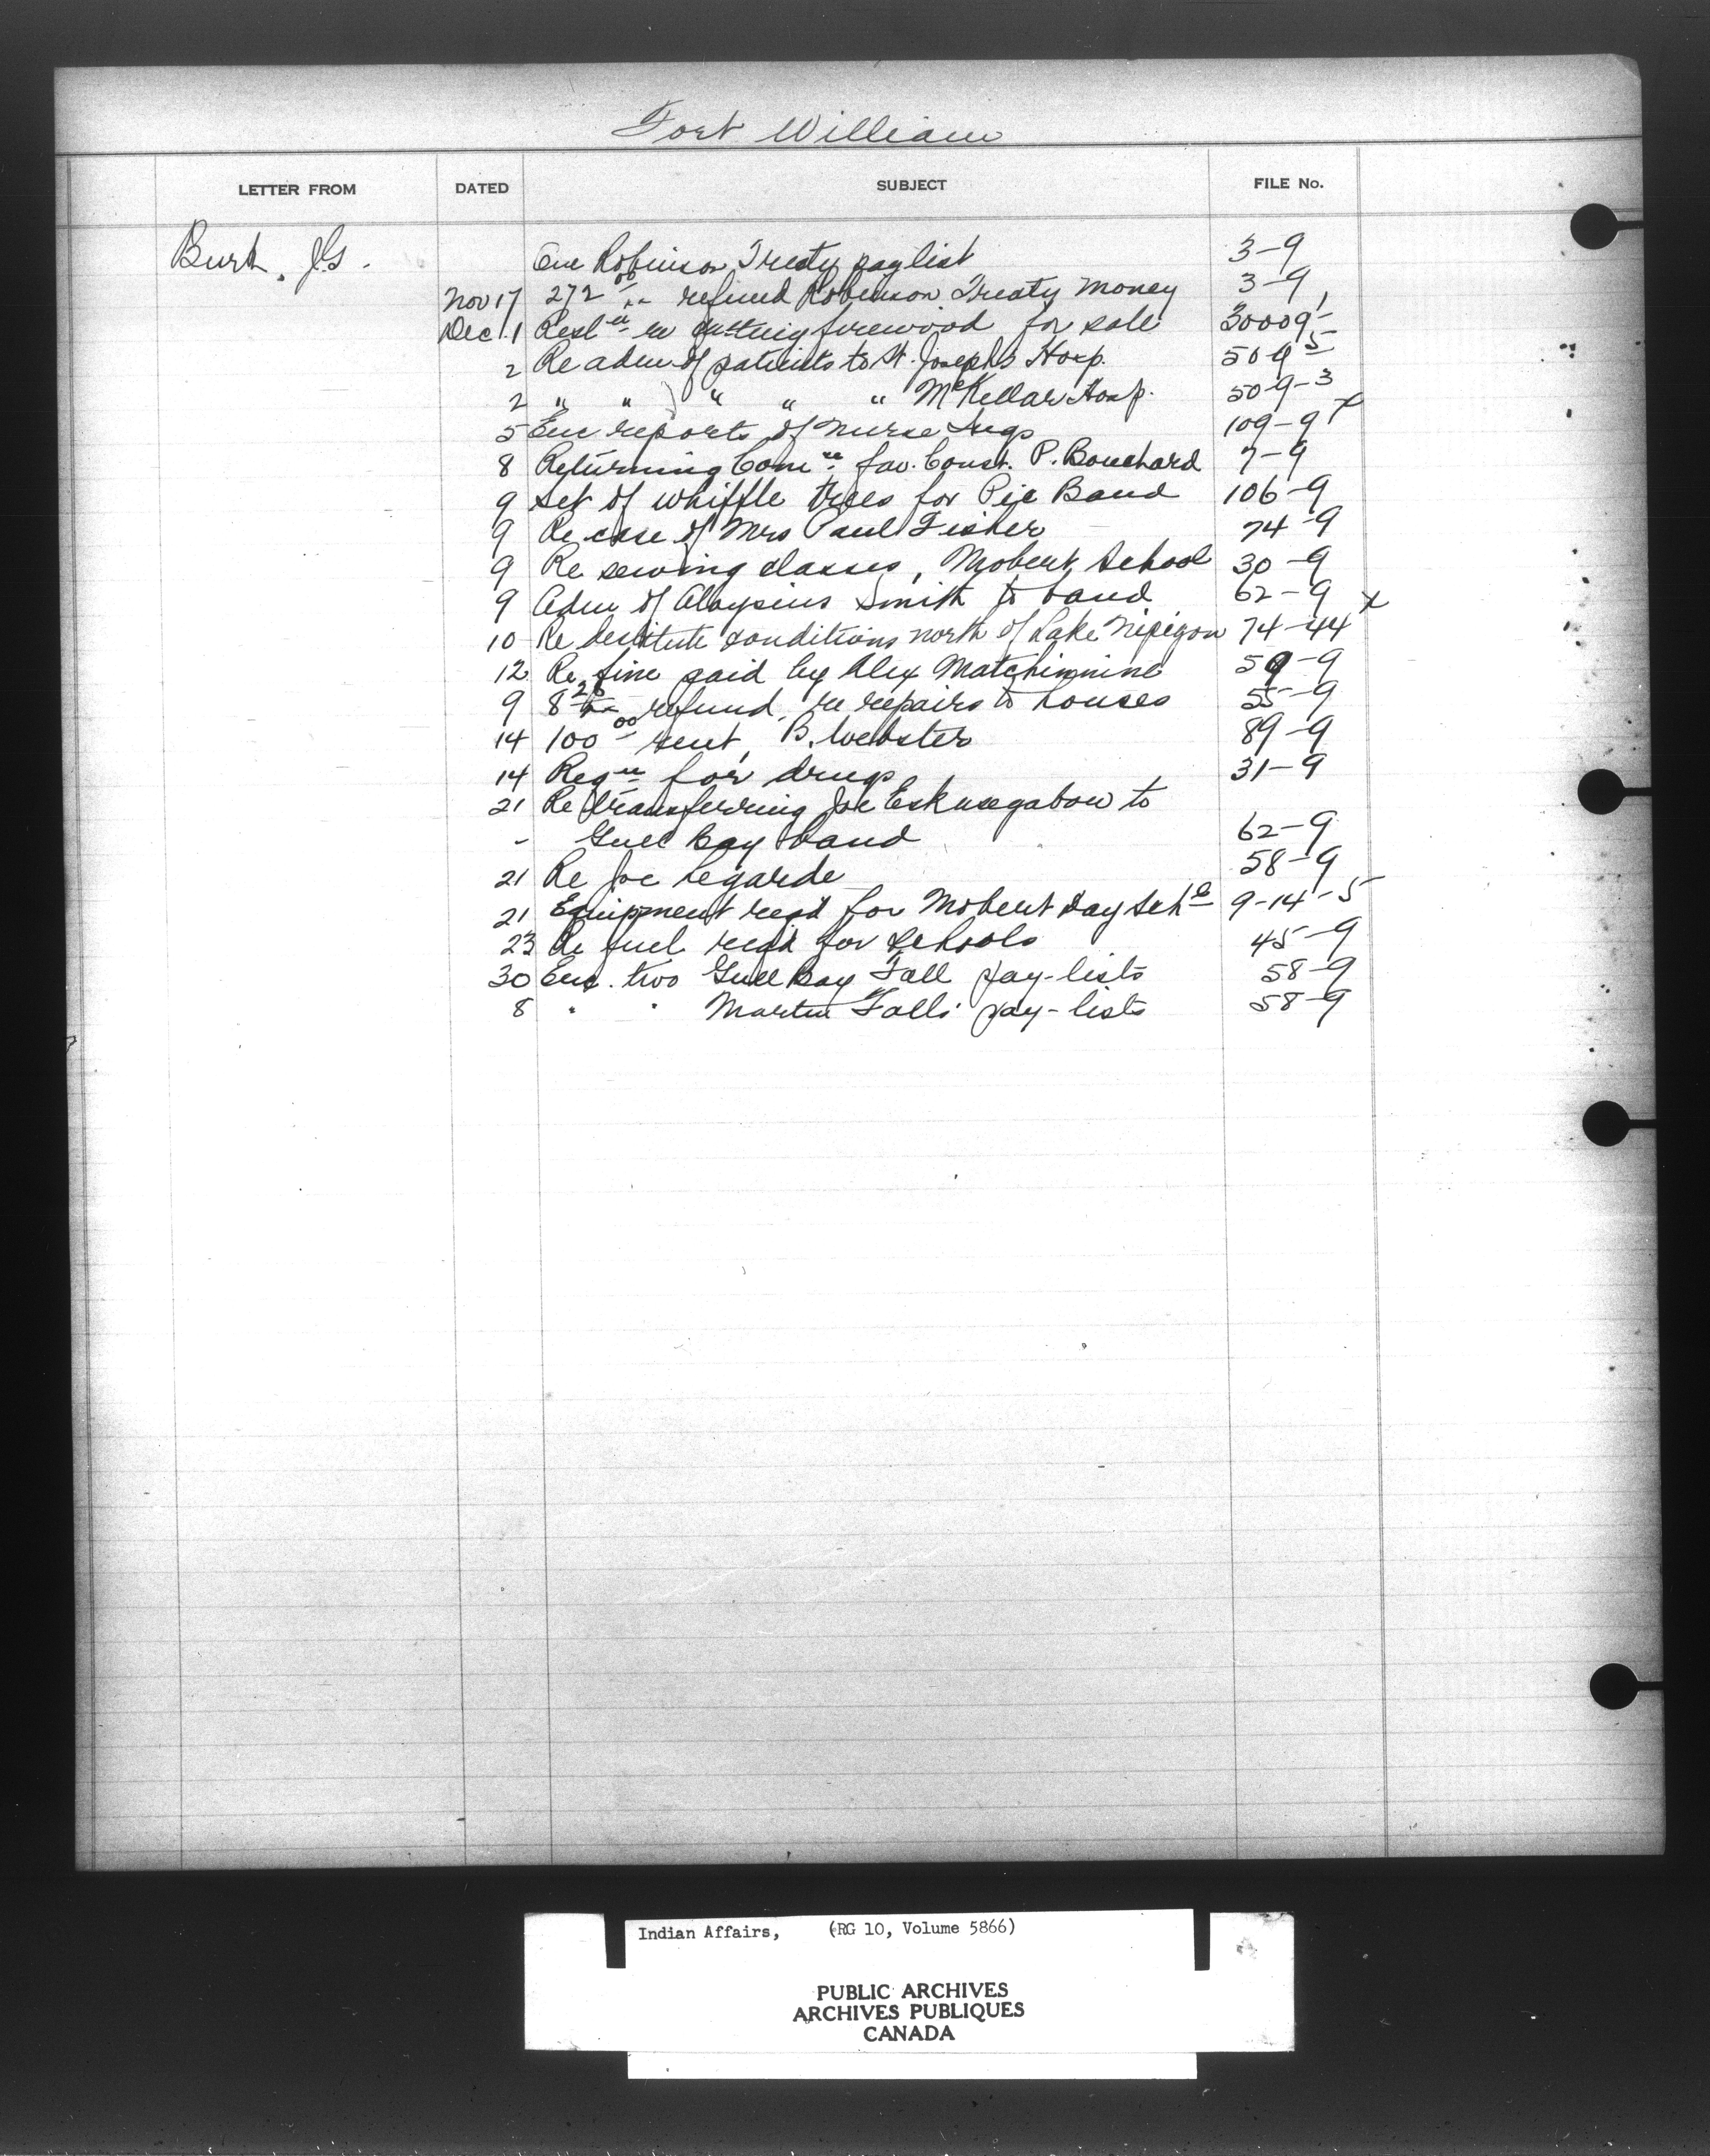 Fort William
LETTER FROM DATED SUBJECT FILE No.
Burk, J.G. Enc Robinson Treaty paylist 3-9
Nov 17 272 00 refund Robinson Treaty Money 3-9
Dec. 1 Resl re cutting firewood for sale 30009-1
2 Re adm of patients to St. Josephs Hosp. 50-9-5
2 " " " " " McKellar Hosp. 50-9-3
5 Enc reports of Nurse 109-9
8 Returning Com fav. Const. P. Bouchard 7-9
9 Set of whiffle trees for Pic Band 106-9
9 Re case of Mrs Paul Fisher 74-9
9 Re sewing classes, Mobert School 30-9
9 Adm of Aloysius Smith to band 62-9 x
10 Re destitute conditions north of Lake Nipigon 74-44
12 Re fine paid by Alex Matchinnine 59-9
9 8 26 refund, re repairs to houses 55-9
14 100 00 rent, B. Webster 89-9
14 Reqn for drugs 31-9
21 Re transferring Joe Eskusegabow to
- Gull Bay band 62-9
21 Re Joe Legarde 58-9
21 Equipment reqd for Mobert Day Schl 9-14-5
23 Re fuel reqd for schools 45-9
30 Enc. two Gull Bay Fall pay-lists 58-9
8 " " Martin Falls pay-lists 58-9
Indian Affairs, (RG 10, Volume 5866)
PUBLIC ARCHIVES
ARCHIVES PUBLIQUES
CANADA